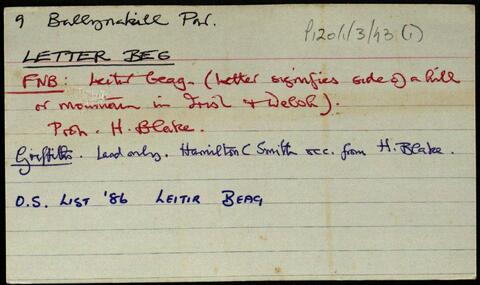 9 Ballynakill Par.
P120/1/3/43 (1)
LETTER BEG
FNB: Leitir beag. (Letter signifies side of a hill
or mountain in Irish & Welsh).
Prop. H. Blake.
Griffiths. Land only. Hamilton C Smith occ. from H. Blake.
O.S. LIST '86 LEITIR BEAG